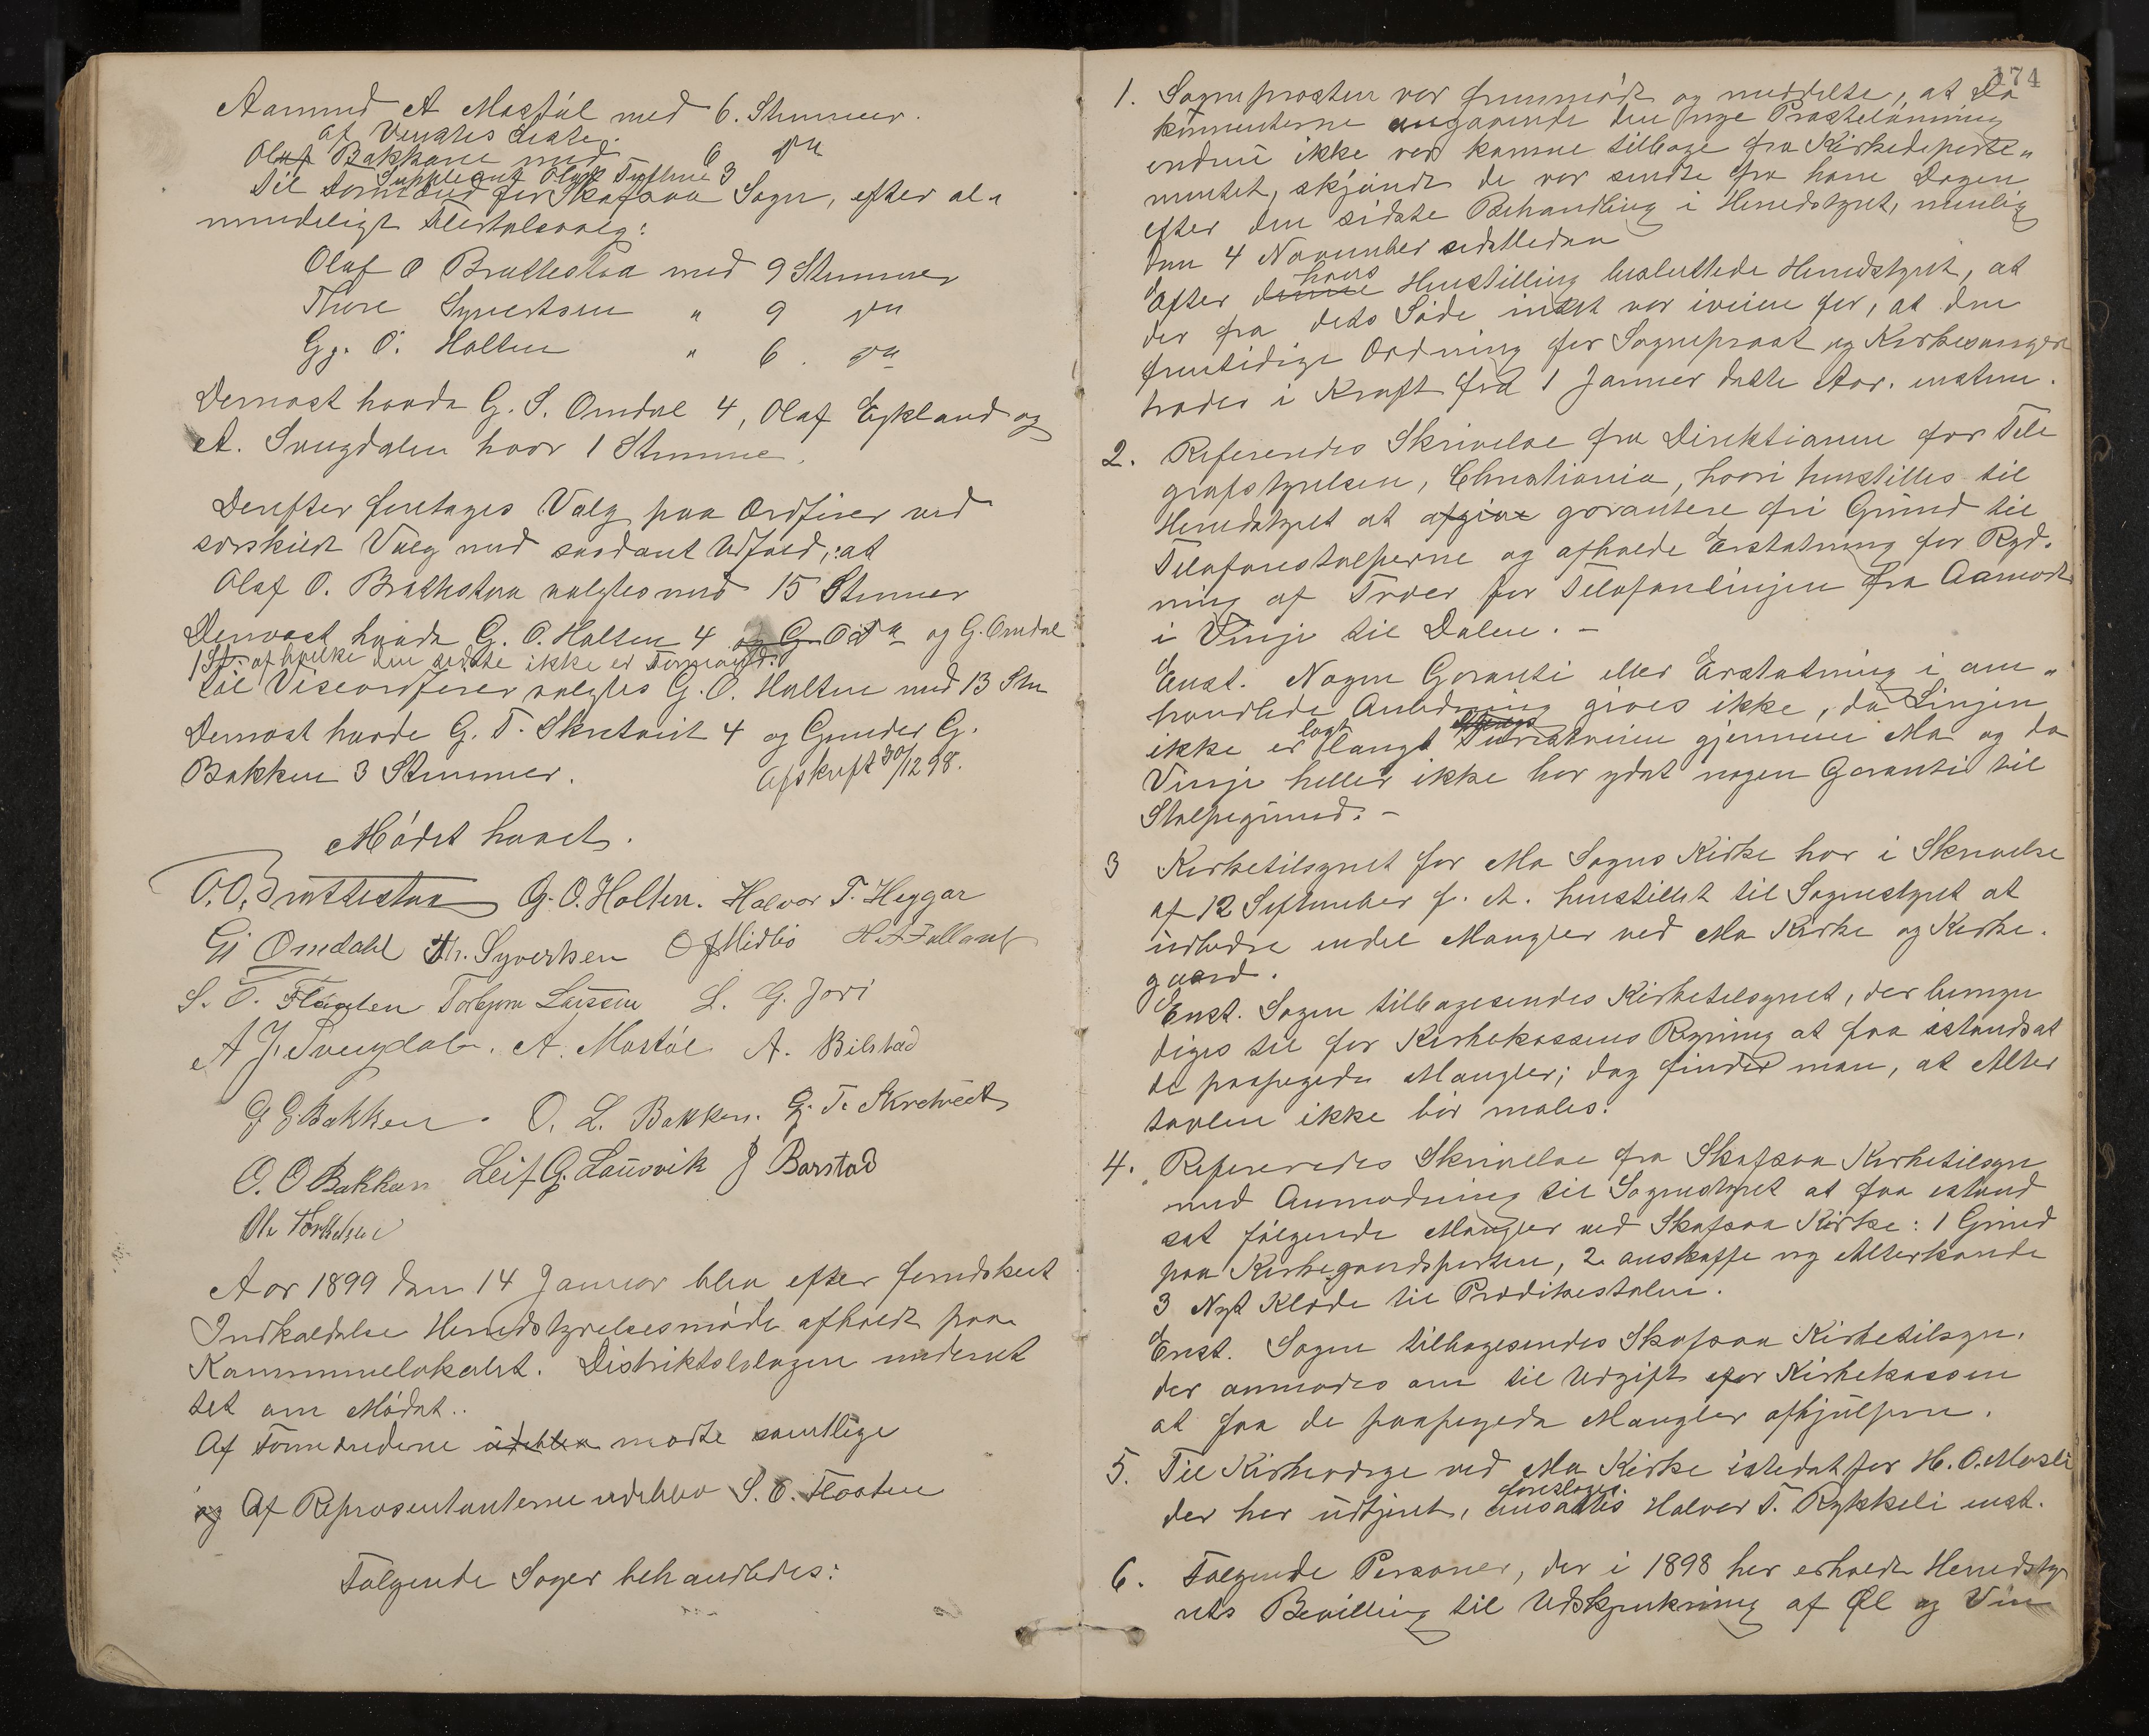 Aamund A Mostøl med 6. Stemmer.
af Venstres Liste.
Olaf Bakkane med 6 do
Suppleant Olaf Tveitane 3
Til Formænd for Skafsaa Sogn, efter al-
mindeligt Flertalsvalg:
Olaf O Brattestaa med 9 Stemmer
Thore Syvertsen " 9 do
Gj. O. Holten " 6. do
Dernæst havde G. S. Omdal 4, Olaf Eykland og
A. Svugdalen hver 1 Stemme.
Derefter foretages Valg paa Ordfører ved
særskildt Valg med saadant Udfald, at
Olaf O. Brattestaa valgtes med 15 Stemmer
Dernæst havde G. O. Holten 4 og G. O do og G. Omdal
1 St. af hvilke den sidste ikke er Formand.
Til Viseordfører valgtes G. O. Holten med 13 Stm
Dernæst havde G. T. Skretveit 4 og Gunder G.
Bakken 3 Stemmer. Afskrift 30/12 98.
Mødet hævet.
O. O. Brattestaa G. O. Holten. Halvor T. Heggar
Gj Omdahl Th. Syversen O J Midbö
S. O. Flaaten Torbjørn Laussen L. G. Jori
A J. Svugdal. A. Mostøl A. Bilstad
G G Bakken. O. L. Bakken. G. T. Skretveit
O. O Bakken Leif G. Lausvik J Barstad
Ole Torkelsen
Aar 1899 den 14 Januar blev efter forudskeet
Indkaldelse Heredstyrelsesmøde afholdt paa
Kommunelokalet. Distriktslægen underret
tet om Mødet..
Af Formændene udeblev mødte samtlige
og Af Repræsentanterne udeblev S. O. Flaaten
Følgende Sager behandledes:
174
1. Sogneprosten var fremmødt og meddelte, at Do
kumenterne angaaende den nye Prestelønning
endnu ikke var komne tilbage fra Kirkedeparte-
mentet, skjøndt de var sendte fra ham Dagen
efter den sidste Behandling i Heredstyret, nemlig
den 4 November sidstleden
Efter denne hans Henstilling besluttede Heredstyret, at
der fra dets Side intet var iveien for, at den
fremtidige Ordning for Sogneprest og Kirkesanger
trædes i Kraft fra 1 Januar dette Aar. enstem.
2. Refereredes Skrivelse fra Direktionen for Tele
grafstyrelsen, Christiania, hvori henstilles til
Heredstyret at afgive garantere fri Grund til
Telefonstolperne og afholde Erstatning for Ryd-
ning af Træer for Telefonlinjen fra Aamodt
i Vinje til Dalen. -
Enst. Nogen Garanti eller Erstatning i om-
handlede Anledning gives ikke, da Linjen
ikke er lagt langs Turistveien gjennem Mo og da
Vinje heller ikke har ydet nogen Garanti til
Stolpegrund. -
3 Kirketilsynet for Mo Sogns Kirke har i Skrivelse
af 12 September f. A. henstillet til Sognestyret at
udbedre endel Mangler ved Mo Kirke og Kirke-
gaard.
Enst. Sagen tilbagesendes Kirketilsynet, der bemyn
diges til for Kirkekassens Regning at faa istandsat
de paapegede Mangler; dog finder man, at Alter
tavlen ikke bør males.
4. Refereredes Skrivelse fra Skafsaa Kirketilsyn
med Anmodning til Sognestyret at faa istand
sat følgende Mangler ved Skafsaa Kirke: 1 Grind
paa Kirkegaardsporten, 2 anskaffe ny Alterkande
3 Nyt Klæde til Prædikestolen.
Enst. Sagen tilbagesendes Skafsaa Kirketilsyn,
der anmodes om til Udgift for Kirkekassen
at faa de paapegede Mangler afhjulpne.
5. Til Kirkeværge ved Mo Kirke istedetfor H. O. Mosli
der har udtjent, ansættes foreslages Halvor T. Rykkeli enst.
6. Følgende Personer, der i 1898 har erholdt Heredsty
rets Bevilling til Udskjænkning af Øl og Vin